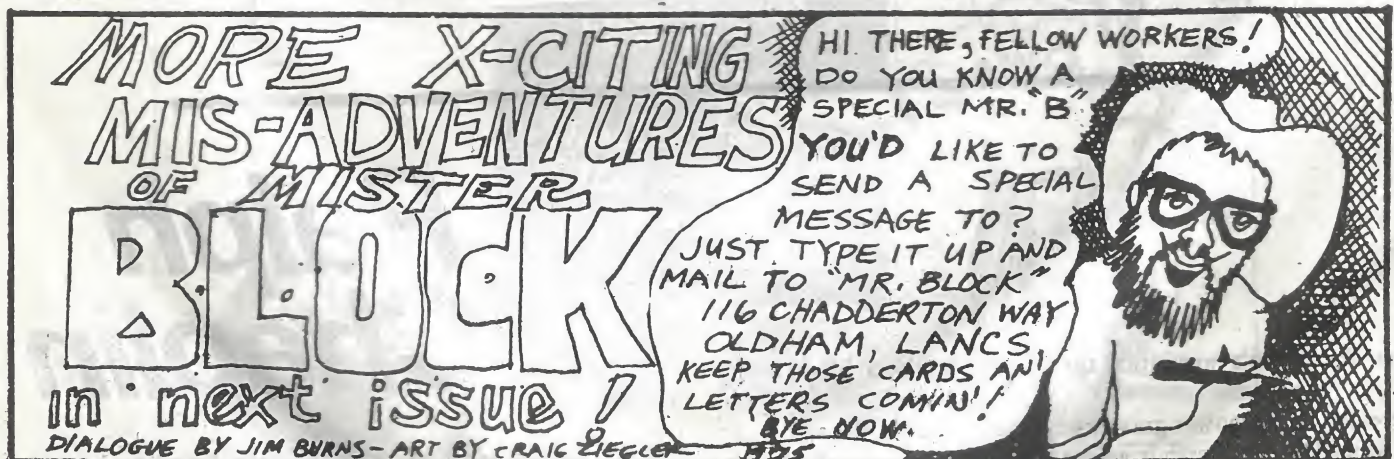 MORE X-CITING
MIS-ADVENTURES
OF MISTER
BLOCK
in next issue!
DIALOGUE BY JIM BURNS - ART BY CRAIG ZIEGLER 1975
HI THERE, FELLOW WORKERS!
DO YOU KNOW A
SPECIAL MR. "B"
YOU'D LIKE TO
SEND A SPECIAL
MESSAGE TO?
JUST TYPE IT UP AND
MAIL TO "MR. BLOCK"
116 CHADDERTON WAY
OLDHAM, LANCS,
KEEP THOSE CARDS AN'
LETTERS COMIN'!
BYE NOW.